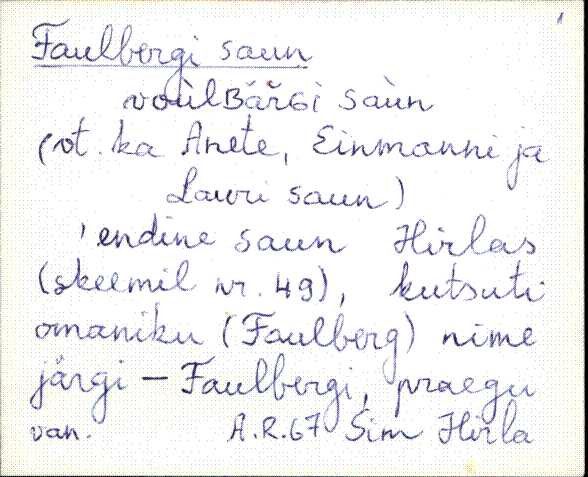 1
Faulbergi saun
voùlBäřGi sàun
(vt. ka Anete, Einmanni ja
Lauri saun)
'endine saun Hirlas
(skeemil nr. 49), kutsuti
omaniku (Faulberg) nime
järgi – Faulbergi, praegu
van. A.R.67 Sim Hirla